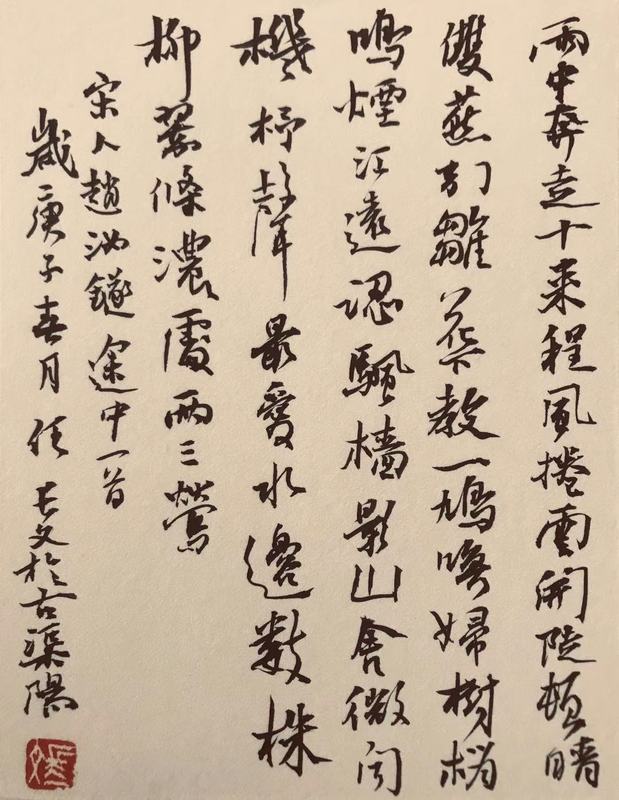 雨中奔走十來程風捲雲開陡頓晴
雙燕引雛花下教一鳩喚婦樹梢
鳴煙江遠認颿檣影山舍微聞
機杼聲最愛水邊數株
柳翠條濃處兩三鶯
宋人趙汝鐩途中一首
歲庚子春月任長文於古渠陽